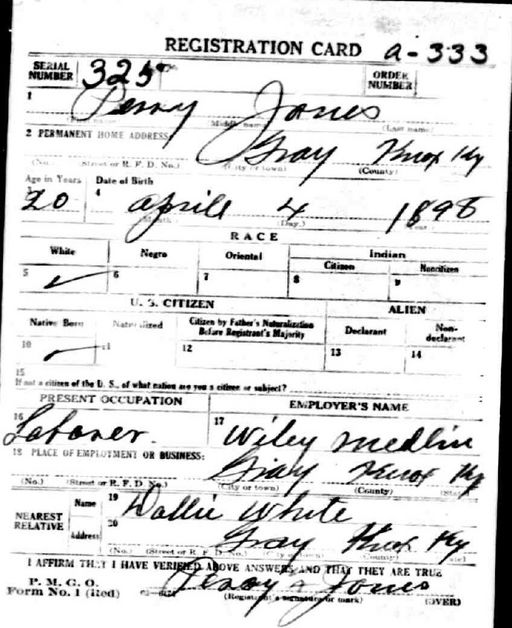 REGISTRATION CARD a-333
SERIAL NUMBER 325 ORDER NUMBER
1 Perry Jones
(Last name)
2 PERMANENT HOME ADDRESS: Gray Knox Ky
(No.) (Street or R. F. D. No.) (City or town) (County)
Age in Years Date of Birth
20 4 aprile 4 1898
(Month) (Day)
RACE
White Negro Oriental Indian
Citizen Noncitizen
5 ✓ 6 7 8 9
U. S. CITIZEN ALIEN
Native Born Naturalized Citizen by Father's Naturalization Before Registrant's Majority Declarant Non-declarant
10 ✓ 11 12 13 14
15
If not a citizen of the U. S., of what nation are you a citizen or subject?
PRESENT OCCUPATION EMPLOYER'S NAME
16 Laborer. 17 Wiley Medlin
18 PLACE OF EMPLOYMENT OR BUSINESS: Gray Knox Ky
(No.) (Street or R. F. D. No.) (City or town) (County)
NEAREST RELATIVE Name 19 Dallie White
Address 20 Gray Knox Ky
(No.) (Street or R. F. D. No.) (City or town) (County)
I AFFIRM THAT I HAVE VERIFIED ABOVE ANSWERS AND THAT THEY ARE TRUE
P. M. G. O.
Form No. 1 (Red) Perry Jones
(Registrant's signature or mark) (OVER)